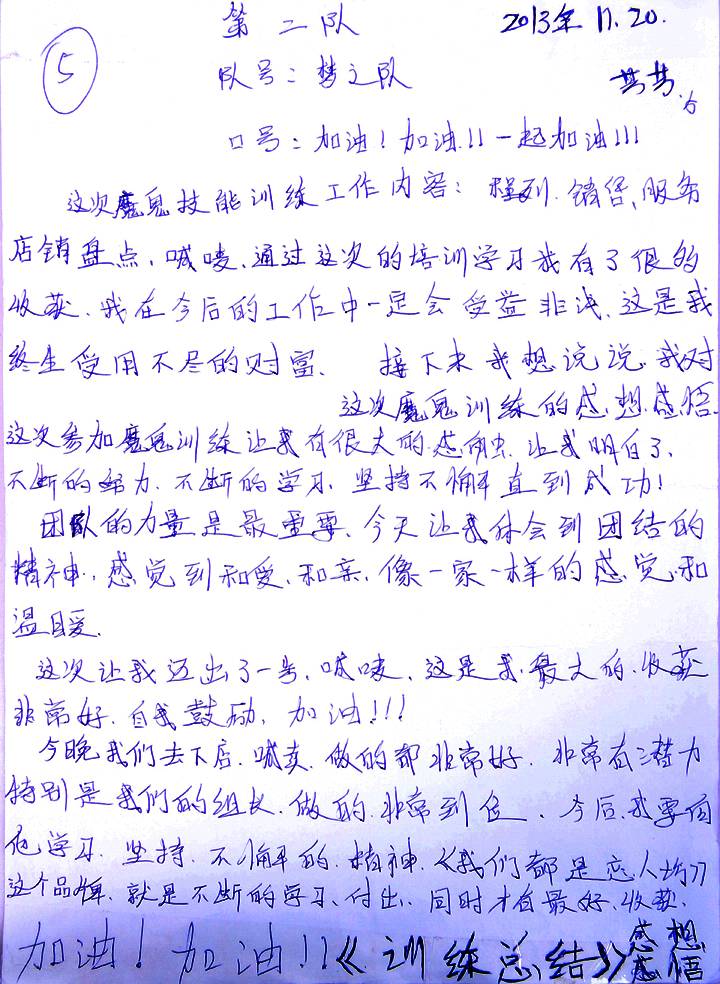 第二队 2013年11.20.
5 队号：梦之队
口号：加油！加油!!一起加油!!!
这次魔鬼技能训练工作内容：陈列.销售、服务
店销盘点、喊唛、通过这次的培训学习我有了很多
收获、我在今后的工作中一定会受益非浅、这是我
终生受用不尽的财富、 接下来我想说说、我对
这次魔鬼训练的感想感悟
这次参加魔鬼训练让我有很大的感触、让我明白了、
不断的努力、不断的学习、坚持不懈直到成功！
团队的力量是最重要、今天让我体会到团结的
精神、感觉到和爱、和亲、像一家一样的感觉和
温暖.
这次让我迈出了一步、喊唛、这是我最大的收获
非常好、自我鼓励、加油!!!
今晚我们去下店、喊卖、做的都非常好、非常有潜力
特别是我们的组长、做的非常到位、今后我要向
他学习、坚持、不懈的精神《我们都是恋人
这个品牌、就是不断的学习、付出、同时才有最好收获、
加油！加油!!《训练总结》感想
感悟